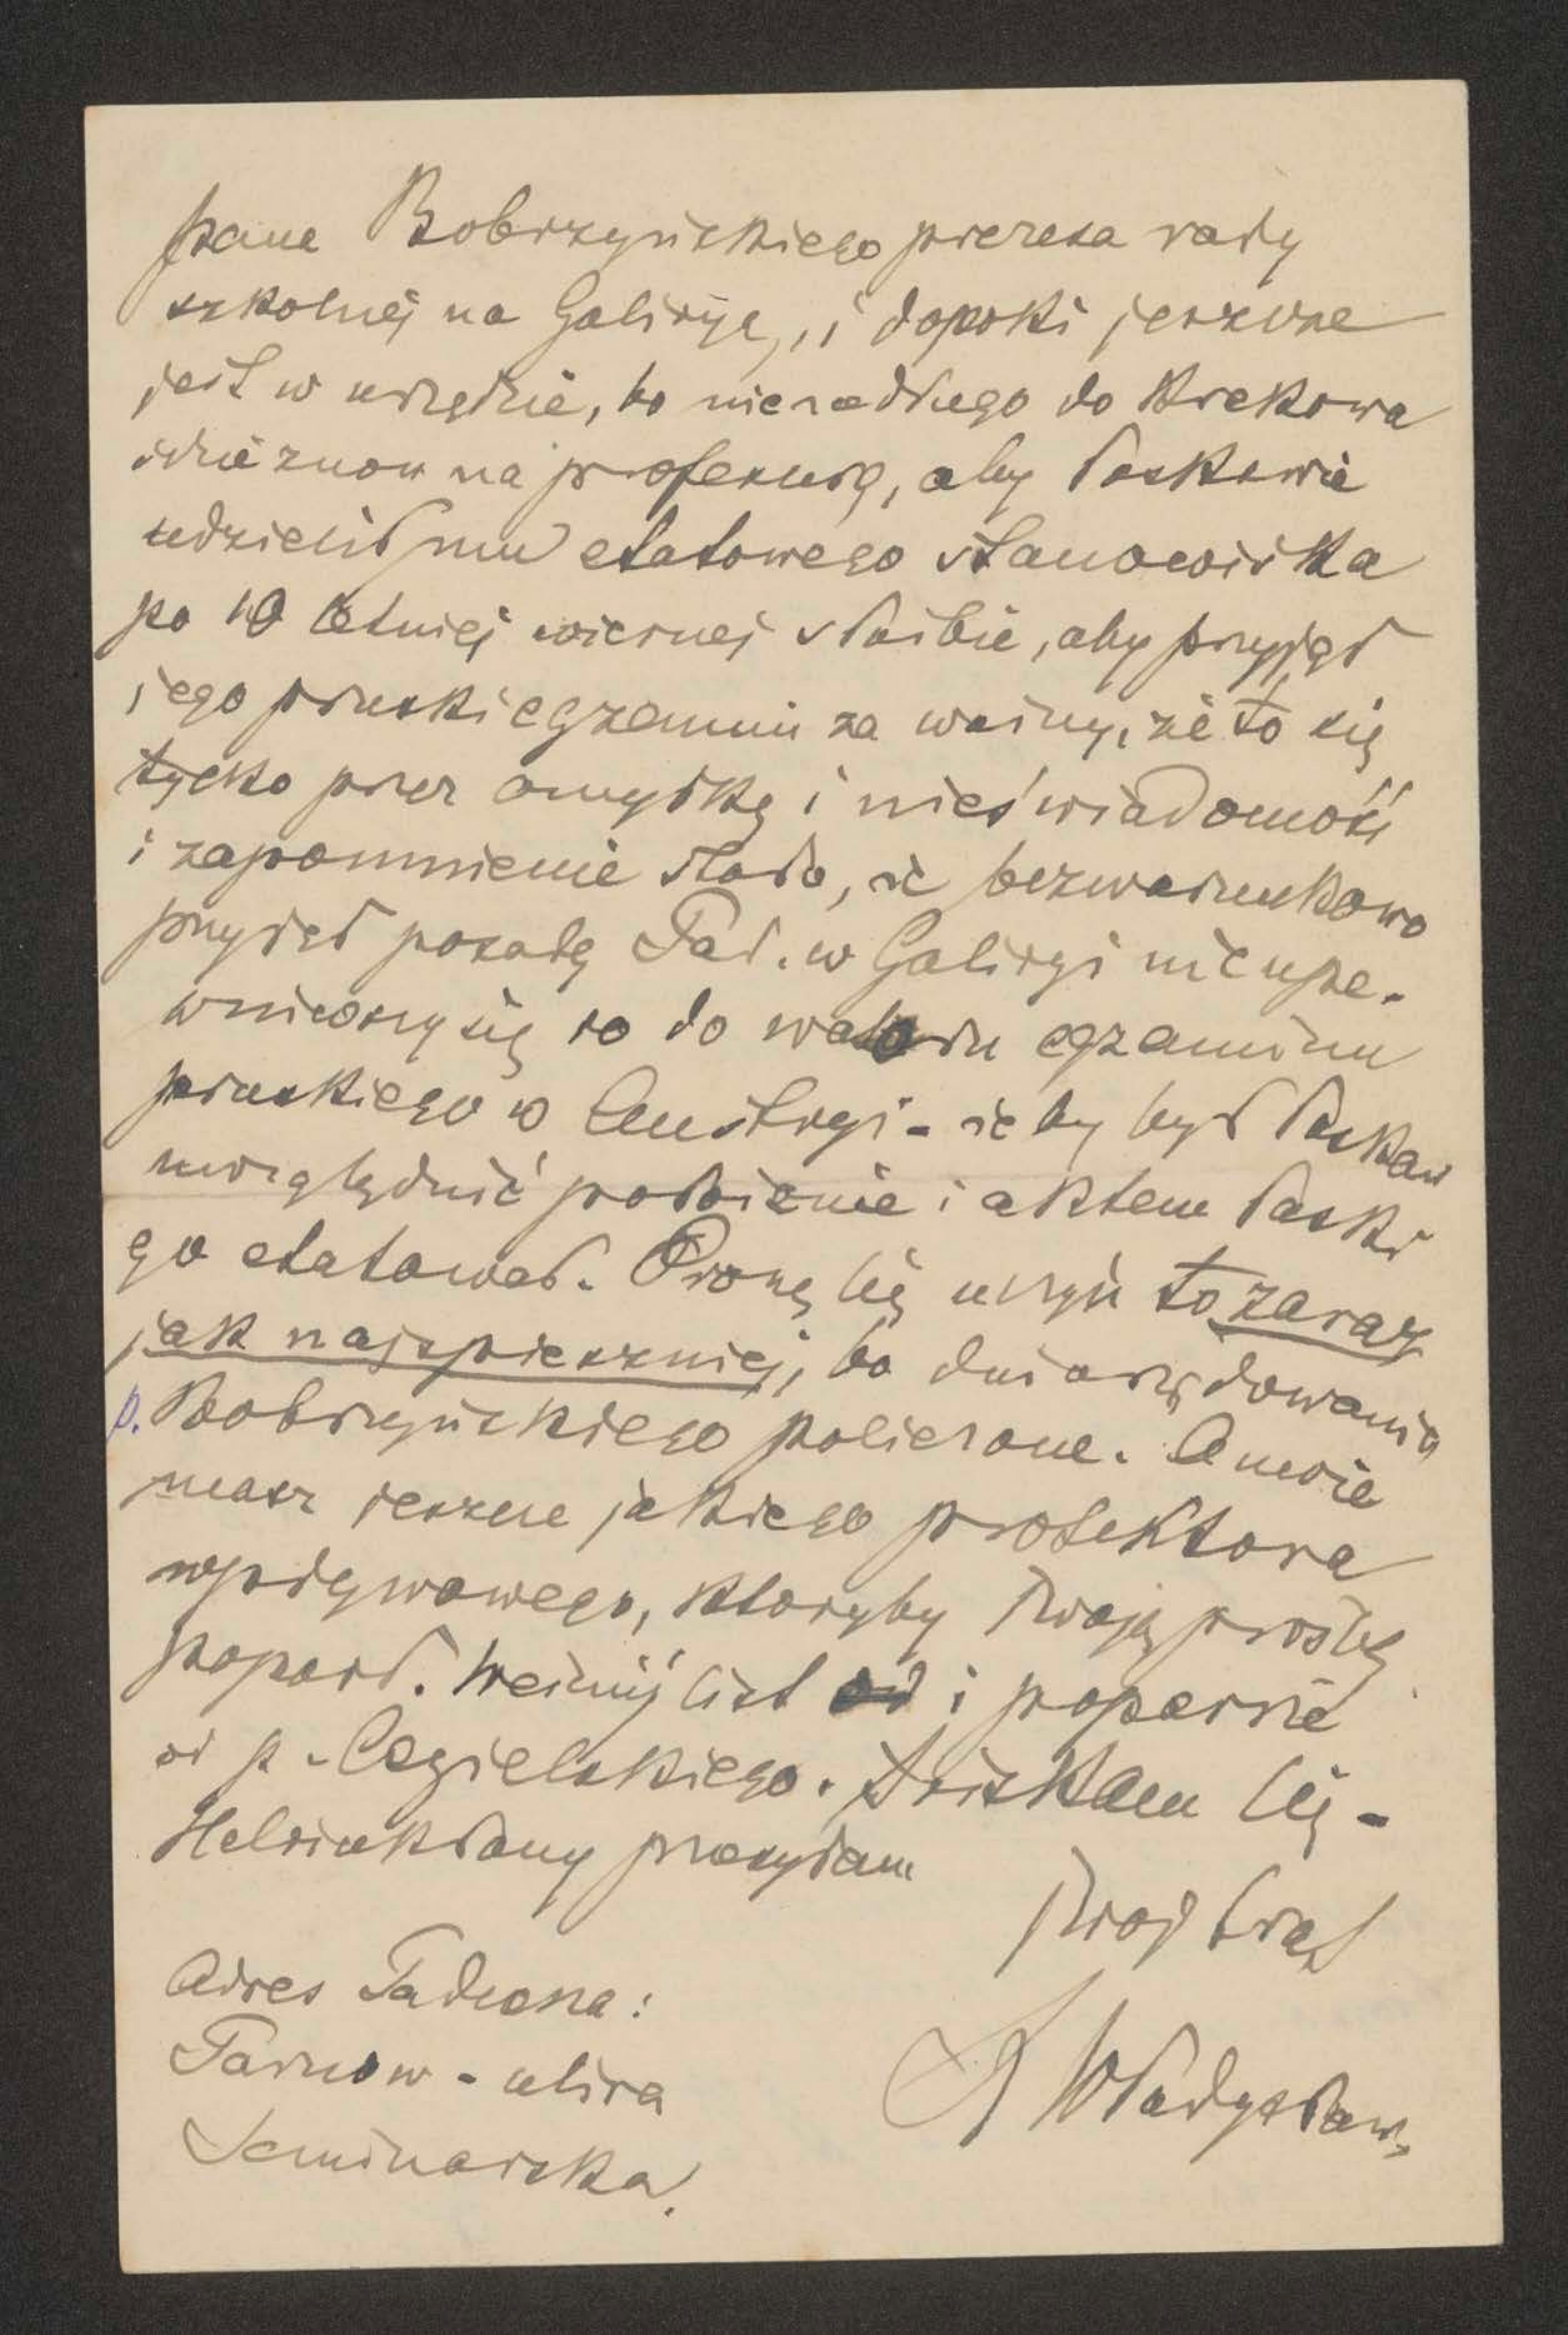 pana Bobrzyńskiego prezesa rady
szkolnej na Galicyę, i dopoki jeszcze
jest w urzędzie, bo niezadługo do Krakowa
idzie znow na profesurę, aby łaskawie
udzielił mu etatowego stanowiska
po 10 letniej wiernej służbie, aby przyjął
jego pruski egzamin za ważny, że to się
tylko przez omyłkę i nieświadomość
i zapomnienie stało, że bezwarunkowo
przyjął posadę Tad. w Galicyi nie upe-
wniwszy się co do waloru egzaminu
pruskiego w Austryi - że by był łaskaw
uwzględnić położenie i aktem łaski
go etatował. Proszę Cię uczyń to zaraz
jak najspieszniej, bo dni urzędowania
p. Bobrzyńskiego policzone. A može
masz jeszcze jakiego protektora
wpływowego, ktoryby Twoją prośbę
poparł. Weźmij list od i poparcie
od p. Cegielskiego. Ściskam Cię -
przesyłam
Twoj brat
Władysław
Adres Tadeusza:
Tarnow - ulica
Seminarska.